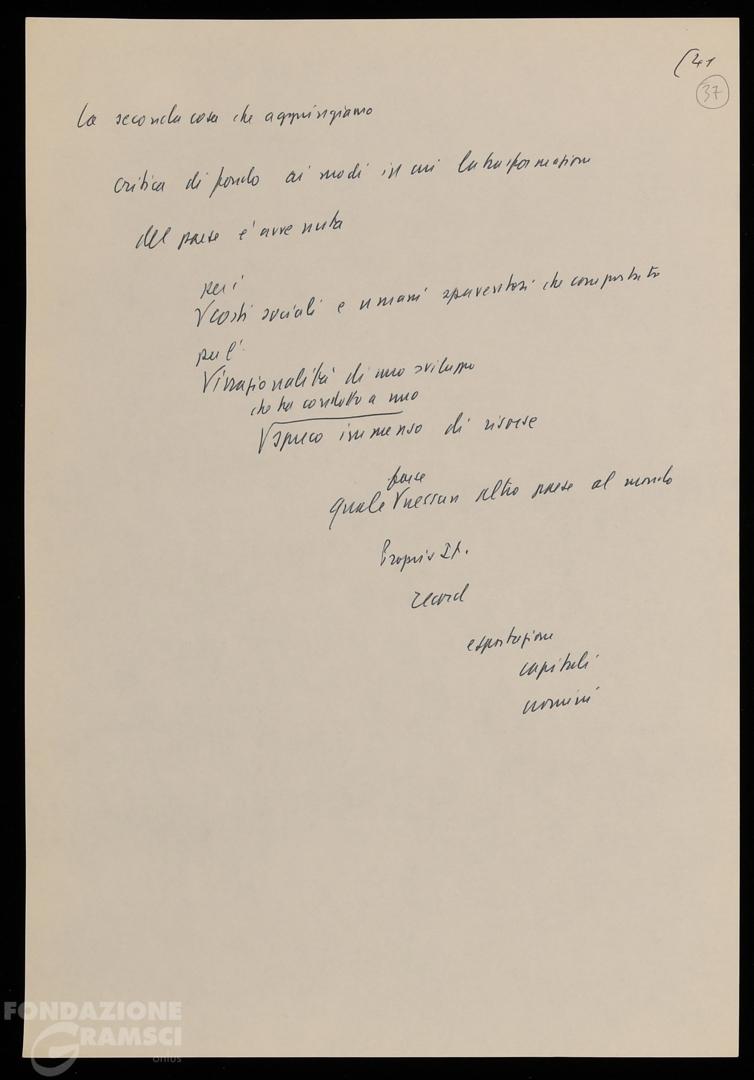 (41
37
La seconda cosa che aggiungiamo
critica di fondo ai modi in cui la trasformazione
del paese è avvenuta
per i
costi sociali e umani spaventosi che comportato
per l'
irrazionalità di uno sviluppo
che ha condotto a uno
spreco immenso di risorse
quale forse nessun altro paese al mondo
Proprio It.
record
esportazione
capitali
uomini
FONDAZIONE
GRAMSCI
onlus